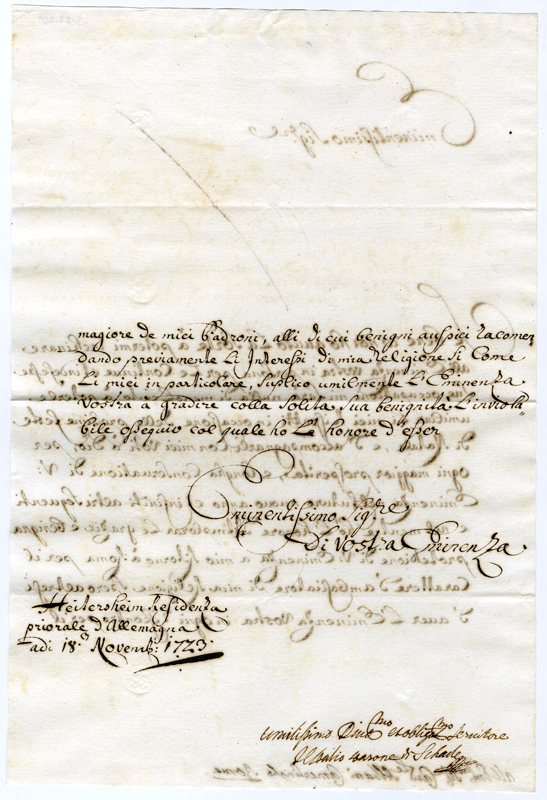 magiore de miei Padroni, alli di cui benigni auspici racoman
dando previamente li Interessi di mia Religione si Come
Li miei in particolare, suplico umilmente L'Eminenza
Vostra à gradire colla solita sua benignita L'inviola
bile ossequio col quale ho L'honore d'esser
Eminentissimo Sig.re
Di Vostra Eminenza
Heitersheim Residenza
priorale d'Allemagna
adi 18. Novemb: 1723.
umilissimo Diu.mo et obblig.mo servitore
Il Balio Barone di